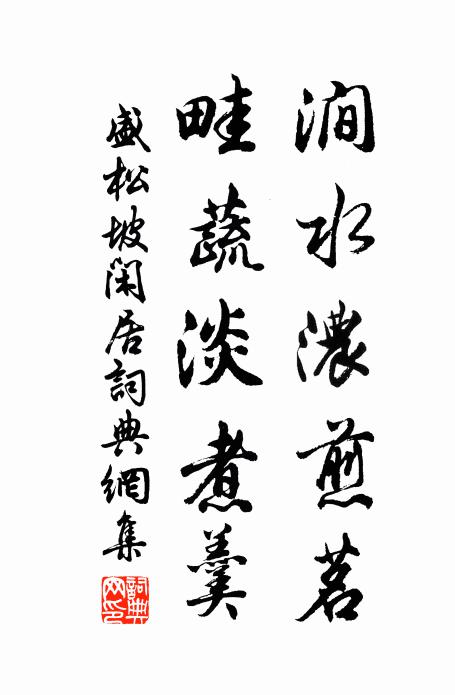 澗水濃煎茗
畦蔬淡煮羹
盛松坡閑居詞典網集
詞典網印